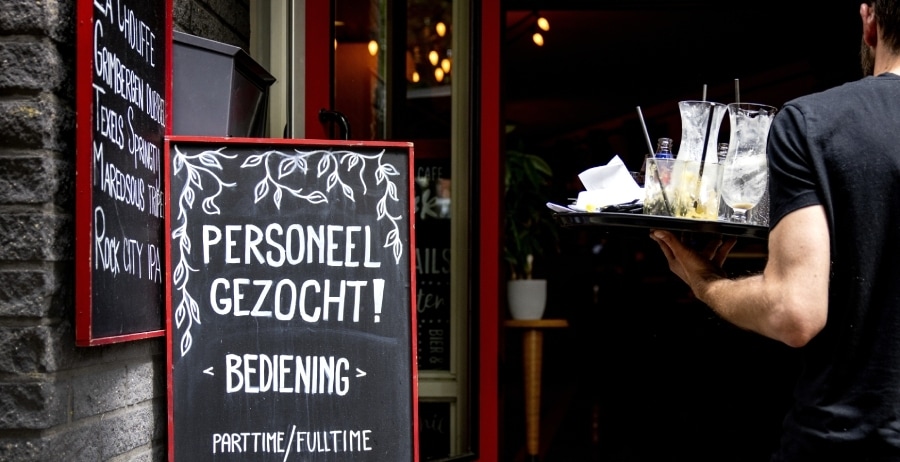 LA CHOUFFE
GRIMBERGEN DUBBEL
TEXELS
MAREDSOUS
ROCK CITY IPA
PERSONEEL
GEZOCHT!
< BEDIENING >
PARTTIME/FULLTIME
CAFE
BIER &